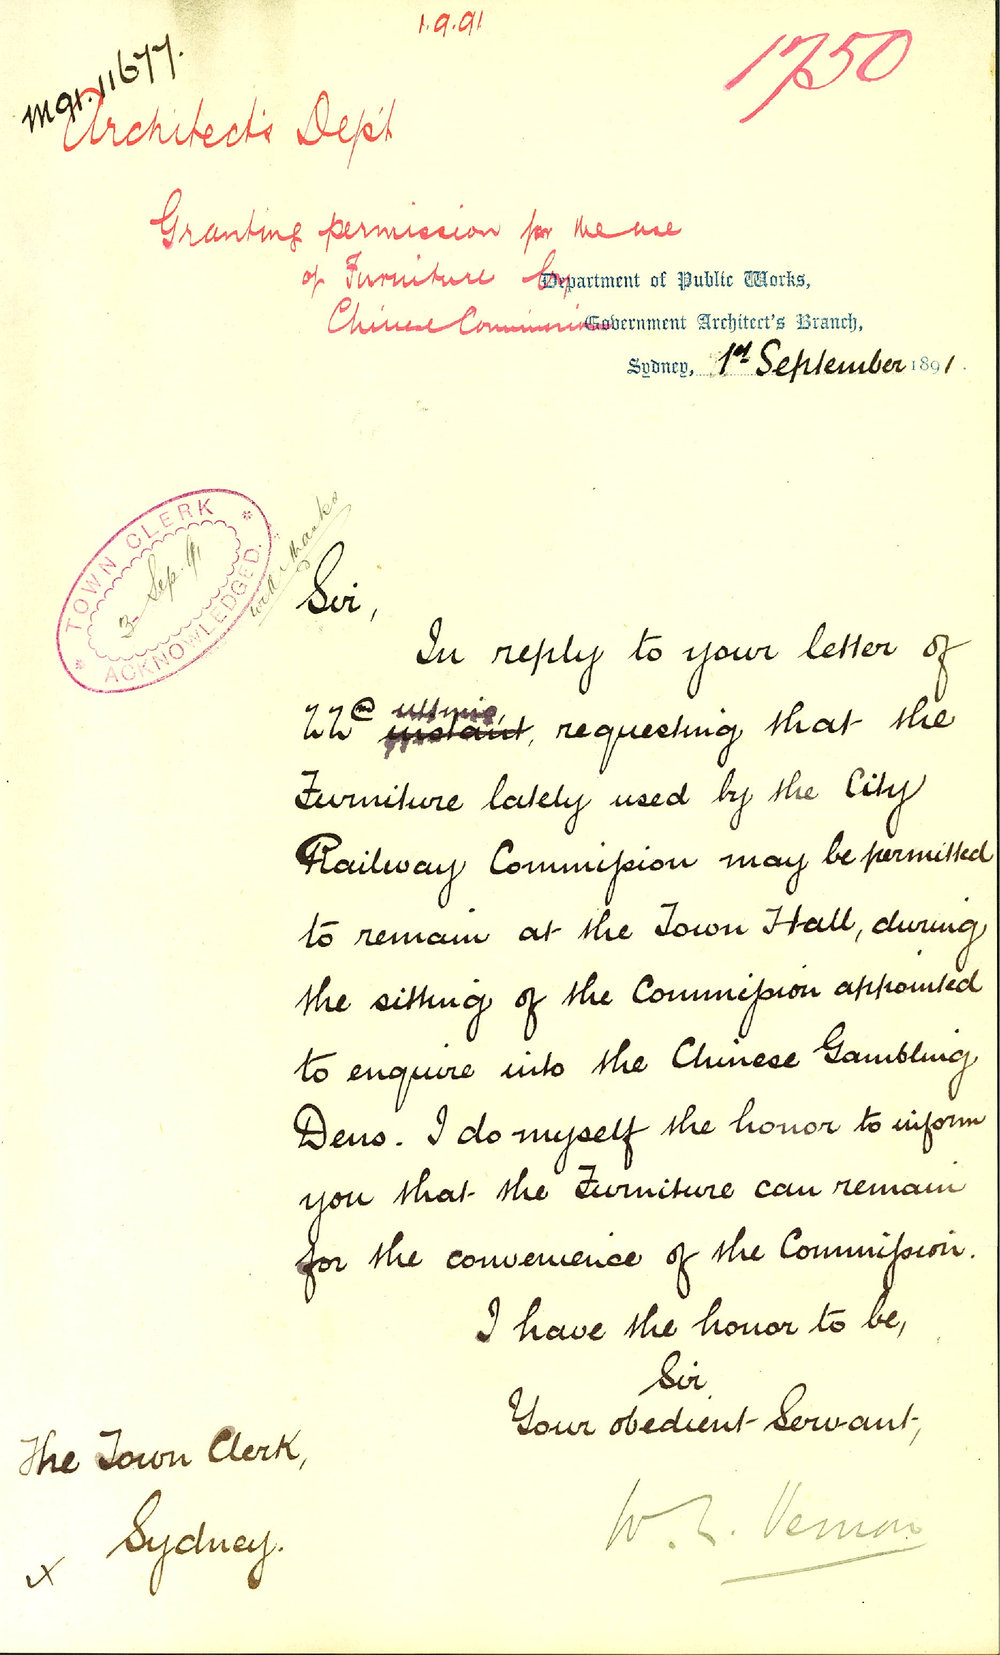 1.9.91
1750
M91.11677.
Architect's Dep't
Granting permission for the use
of Furniture by
Chinese Commission
Department of Public Works,
Government Architect's Branch,
Sydney, 1st September 1891.
TOWN CLERK
3 Sep. 91
ACKNOWLEDGED.
with thanks
Sir,
In reply to your letter of
22nd instant ultimo, requesting that the
Furniture lately used by the City
Railway Commission may be permitted
to remain at the Town Hall, during
the sitting of the Commission appointed
to enquire into the Chinese Gambling
Dens. I do myself the honor to inform
you that the Furniture can remain
for the convenience of the Commission.
I have the honor to be,
Sir
Your obedient Servant,
W. L. Vernon
The Town Clerk,
Sydney.
x